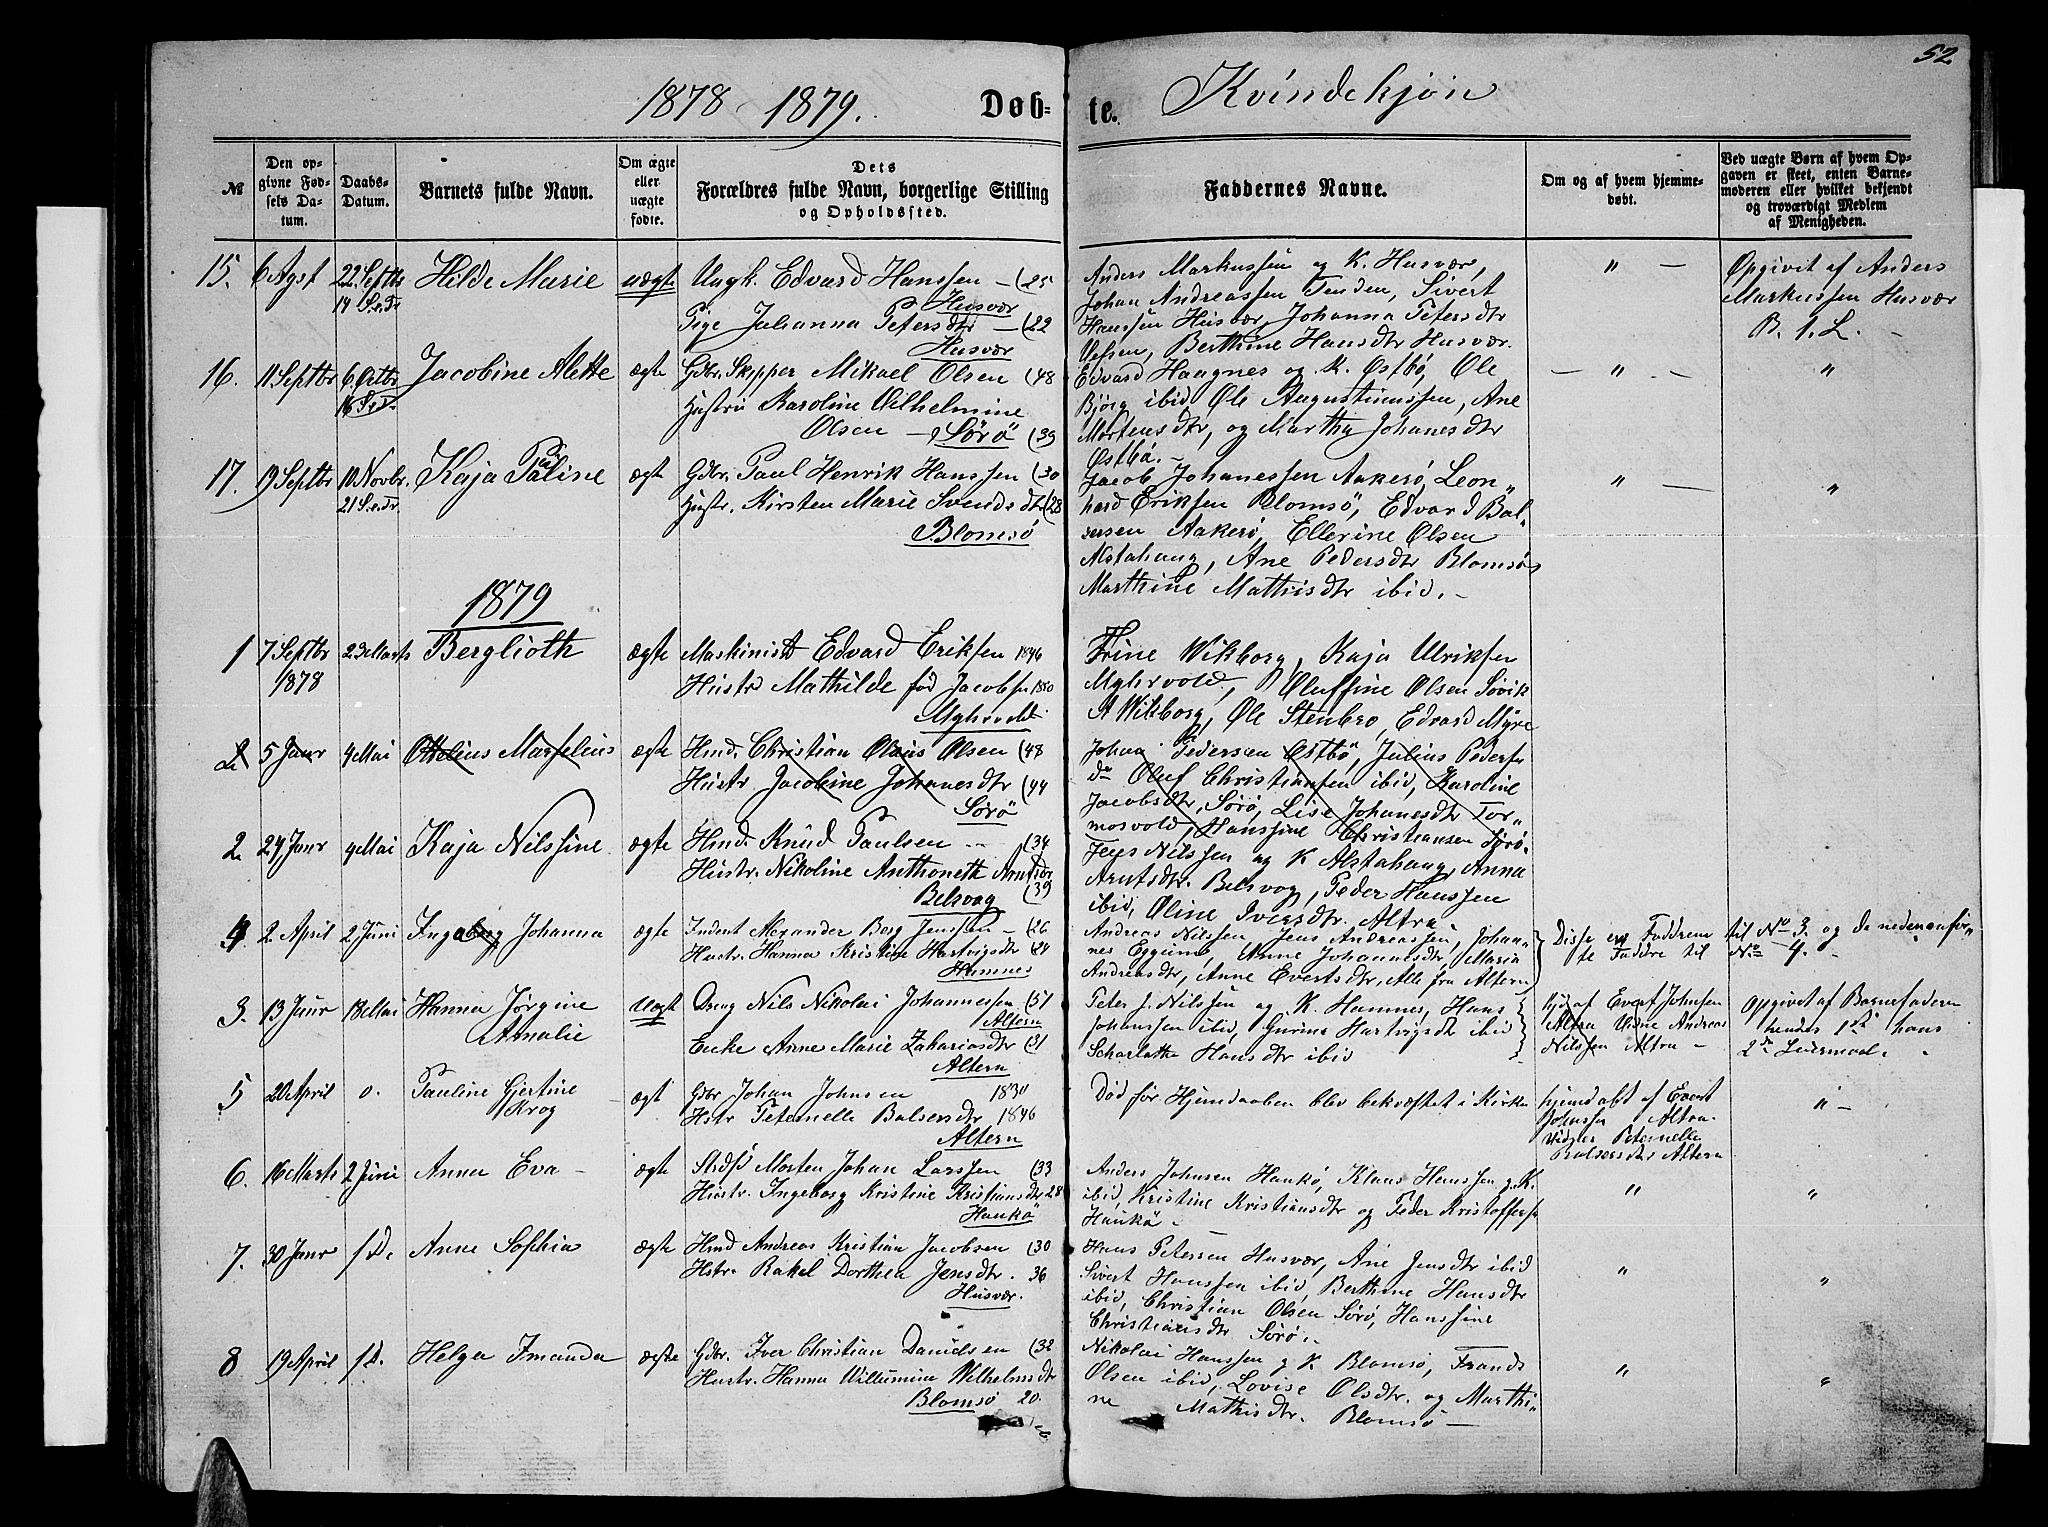 52
1878 - 1879.
Døb-
te.
Kvindekjøn
№
Den op-
givne Fød-
sels Da-
tum.
Daabs-
Datum.
Barnets fulde Navn.
Om ægte
eller
uægte
fødte.
Dets
Forældres fulde Navn, borgerlige Stilling
og Opholdssted.
Faddernes Navne.
Om og af hvem hjemme-
døbt.
Ved uægte Børn af hvem Op-
gaven er skeet, enten Barne-
moderen eller hvilket bekjendt
og troværdigt Medlem
af Menigheden.
15. 6 Agst 22 Septbr Hilde Marie uægte Ungk. Edvard Hanssen - (25
14 S.e.Tr. Husvær
Pige Julianna Petersdtr - (22
Husvær
Anders Markussen og K. Husvær,
Johan Andreassen Tenden, Sivert
Hanssen Husvær, Johanna Petersdtr
Vefsen, Berthine Hansdtr Husvær.
" -
Opgivit af Anders
Markussen Husvær
B. 1. L. -
16. 11 Septbr 6 Octbr Jacobine Alette ægte Gdbr. Skipper Mikael Olsen (48
16 S.e.Tr. Hustru Karoline Vilhelmine
Olsen - Sørø (39
Edvard Haagnes og K. Østbø, Ole
Bjørg ibid, Ole Augustinussen, Ane
Mortensdtr, og Martha Johanesdtr
Østbø. -
- " -
"
17. 19 Septbr 10 Novbr. Kaja Pauline ægte Gdbr. Paul Henrik Hanssen (30
21 S.e.Tr. Hustr. Kirsten Marie Svendsdtr (28
Blomsø
Jacob Johanessen Aakerø, Leon"
hard Eriksen Blomsø, Edvard Bal-
sersen Aakerø, Ellerine Olsen
Alstahaug, Ane Pedersdtr Blomsø,
Marthine Mathisdtr ibid. -
" -
"
1879
1 7 Septbr 23 Marts Berglioth ægte Maskinist Edvard Eriksen 1846
1878 Hustr Mathilde fød Jacobsen 1850
Myhrvold.
Trine Wikborg, Kaja Ulriksen
Myhrvold, Oluffine Olsen Søvik
A Wikborg, Ole Stenbro, Edvard Myre
2 5 Janr 4 Mai Ottelius Marselius ægte Hmd. Christian Olaus Olsen (48
Hustr Jacobine Johanesdtr (44
Sørø
Johan Pedersen Østbø, Julius Pedersen
do Oluf Christiansen ibid, Karoline
Jacobsdtr, Sørø, Lise Johanesdtr Tor-
mosvold, Hanssine Christiansen Sørø.
2. 24 Janr 4 Mai Kaja Nilssine ægte Hmd. Knud Paulsen - (34
Hustr. Nikoline Anthonette Arntsdtr
Belsvag (39
Jens Nilssen og K Alstahaug, Anna
Arntsdtr. Belsvog, Peder Hanssen
ibid, Oline Iversdtr. Altra
4 2 April 2 Juni Ingeborg Johanna ægte Inderst Alexander Berg Jenssen - (26
Hustr. Hanna Kristine Hartvigsdtr (24
Hamnes
Andreas Nilssen Jens Andreassen, Johan-
nes Eggum, Anne Johannesdtr Maria
Andreasdtr, Anne Evertsdtr, Alle fra Altern
Disse er Faddrene til No 3. og de nedenanfør-
te Faddre til No 4. -
3. 13 Janr 18 Mai Hanna Jørgine Uægt Dreng Nils Nikolai Johannessen (51
Amalie Altern
Enke Anne Marie Zahariasdtr (31
Altern
Peter J. Nilssen og K. Hamnes, Hans
Johanssen ibid, Gurina Hartvigsdtr ibid
Scharlotte Hansdtr ibid
Hjd. af Evert Johnsen
Altra Vidne Andreas
Nilssen Altra -
Opgivet af Barnefaderen
hendes 1ste hans
2den Leiermaal.
5 20 April 0. Pauline Gjertine ægt Gdbr Johan Johnsen 1830
Krog Hstr Peternelle Balsersdtr 1846
Altern
Død før Hjemdaaben blev bekræftet i Kirken
hjemdøbt af Evert
Johnssen Altra
Vidner Peternelle
Balsersdtr Altern
" -
6. 16 Marts 2 Juni Anna Eva - ægte Strdsd Morten Johan Larssen (33
Hustr. Ingeborg Kristine Kristiansdtr 28
Haukø
Anders Johnsen Haukø, Klaus Hanssen g. K.
ibid, Kristine Kristiansdtr og Peder Kristoffersen
Haukø -
"
"
7. 30 Janr s.D. Anne Sophia ægte Hmd Andreas Kristian Jacobsen (30
Hstr. Rakel Dorthea Jensdtr. 36
Husvær.
Hans Petersen Husvær, Ane Jensdtr ibid
Sivert Hanssen ibid, Berthine Hansdtr
ibid, Christian Olsen Sørø, Hanssine
Christiansdtr Sørø..
"
"
8 19 April s.D. Helga Imanda ægte Gdbr. Iver Christian Danielsen (32
Hustr. Hanna Willumine Wilhelmsdtr
Blomsø 20.
Nikolai Hanssen g K Blomsø, Frands
Olsen ibid, Lovise Olsdtr. og Marthi-
ne Mathisdtr. Blomsø -
"
"